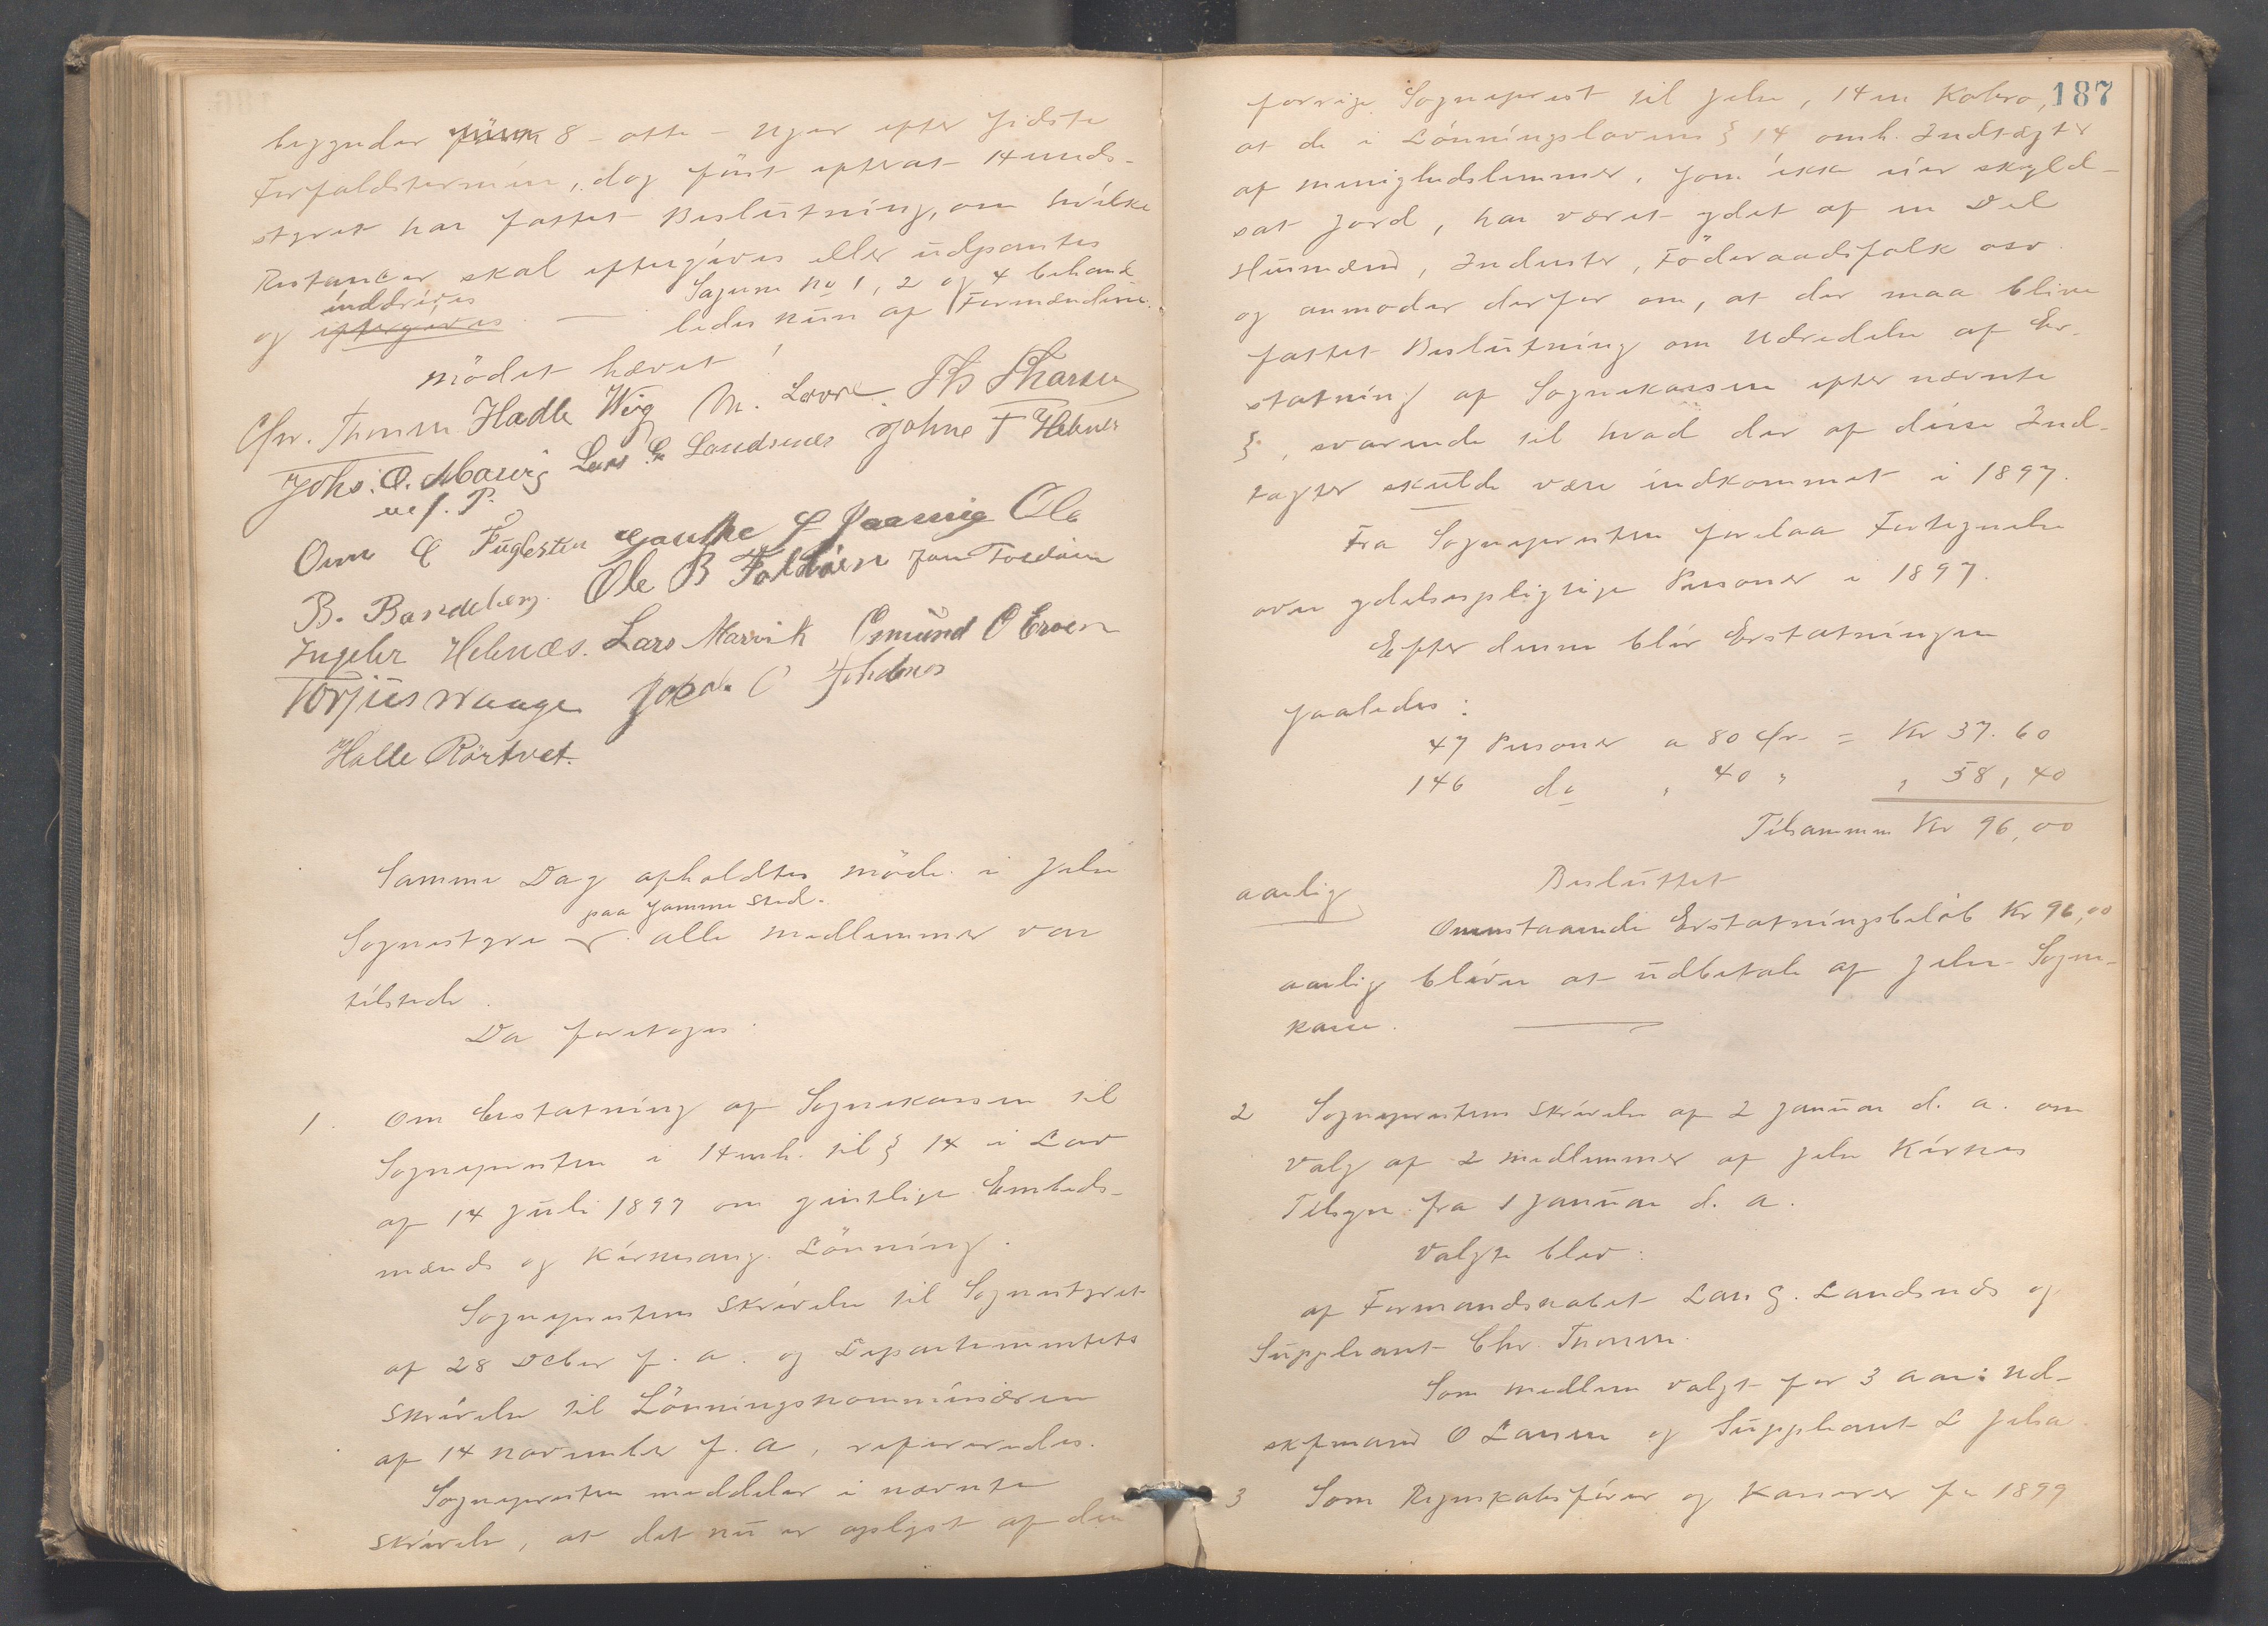 begynder 8 - otte - Uger efter sidste
Forfaldstermin, dog först efterat Herreds-
styret har fattet Beslutning, om hvilke
Restancer skal eftergives eller udpantes
og inddrives eftergives — Sagerne No 1, 2 og 4 behand
ledes kun af Formændene.
Mödet hævet!
Chr. Thomsen Hadle Wiig M. Lovra Th Tharsen
Johs. O. Marvig Lars G Landsnes Johne T Hebnes
m. f. P.
Omn E Fuglesten Gauthe G Jaarvig Ole
B. Bandeberg. Ole B Foldöen Jon Foldöen
Ingebr Hebnæs. Lars Marvik Osmund O Eroen
Torjus Waage Jokob O Hebnes
Halle Rörtvet.
Samme Dag afholdtes möde i Jelse
paa samme Sted.
Sognestyre alle medlemmer var
tilstede.
Da foretoges:
1. Om Erstatning af Sognekassen til
Sognepresten i Henh. til § 14 i Lov
af 14 Juli 1897 om geistlige Embeds-
mænds og Kirkesang. Lönning.
Sogneprestens Skrivelse til Sognestyret
af 28 Dcbr f. a. og Departementets
Skrivelse til Lönningskommissæren
af 14 November f. a, refereredes.
Sognepresten meddeler i nævnte
Skrivelse, at det nu er oplyst af den
187
forrige Sogneprest til Jelse, Hr Kobro,
at de i Lönningslovens § 14 omh. Indtægter
af menighedslemmer, som ikke eier skyld-
sat Jord, har været ydet af en Del
Husmænd, Inderster, Föderaadsfolk osv.
og anmoder derfor om, at der maa blive
fattet Beslutning om Udredelse af Er-
statning af Sognekassen efter nævnte
§, svarende til hvad der af disse Ind-
tægter skulde være indkommet i 1897.
Fra Sognepresten forelaa Fortegnelse
over ydelsespligtige Personer i 1897.
Efter denne blir Erstatningen
saaledes:
47 Personer a 80 Öre = Kr 37.60
146 do " 40 " " 58,40
Tilsammen Kr 96,00
Besluttet
aarlig
Ommstaaende Erstatningsbelöb Kr 96,00
aarlig bliver at udbetale af Jelse Sogne-
kasse.
2 Sogneprestens Skrivelse af 2 Januar d. a. om
Valg af 2 medlemmer af Jelse Kirkes
Tilsyn fra 1 Januar d. a.
Valgte blev:
af Formandskabet Lars G. Landsnæs og
Suppleant Chr. Thomsen.
Som medlem valgt for 3 aar: Ud-
skiftmand O Larsen og Suppleant L Jelsa.
3 Som Regnskabsförer og Kasserer for 1899